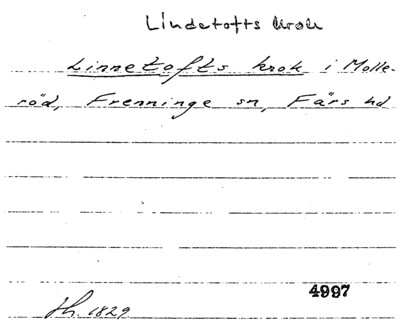 Lindetofts krok
Linnetofts krok i Molle-
röd, Frenninge sn, Färs hd
4997
Jh. 1829